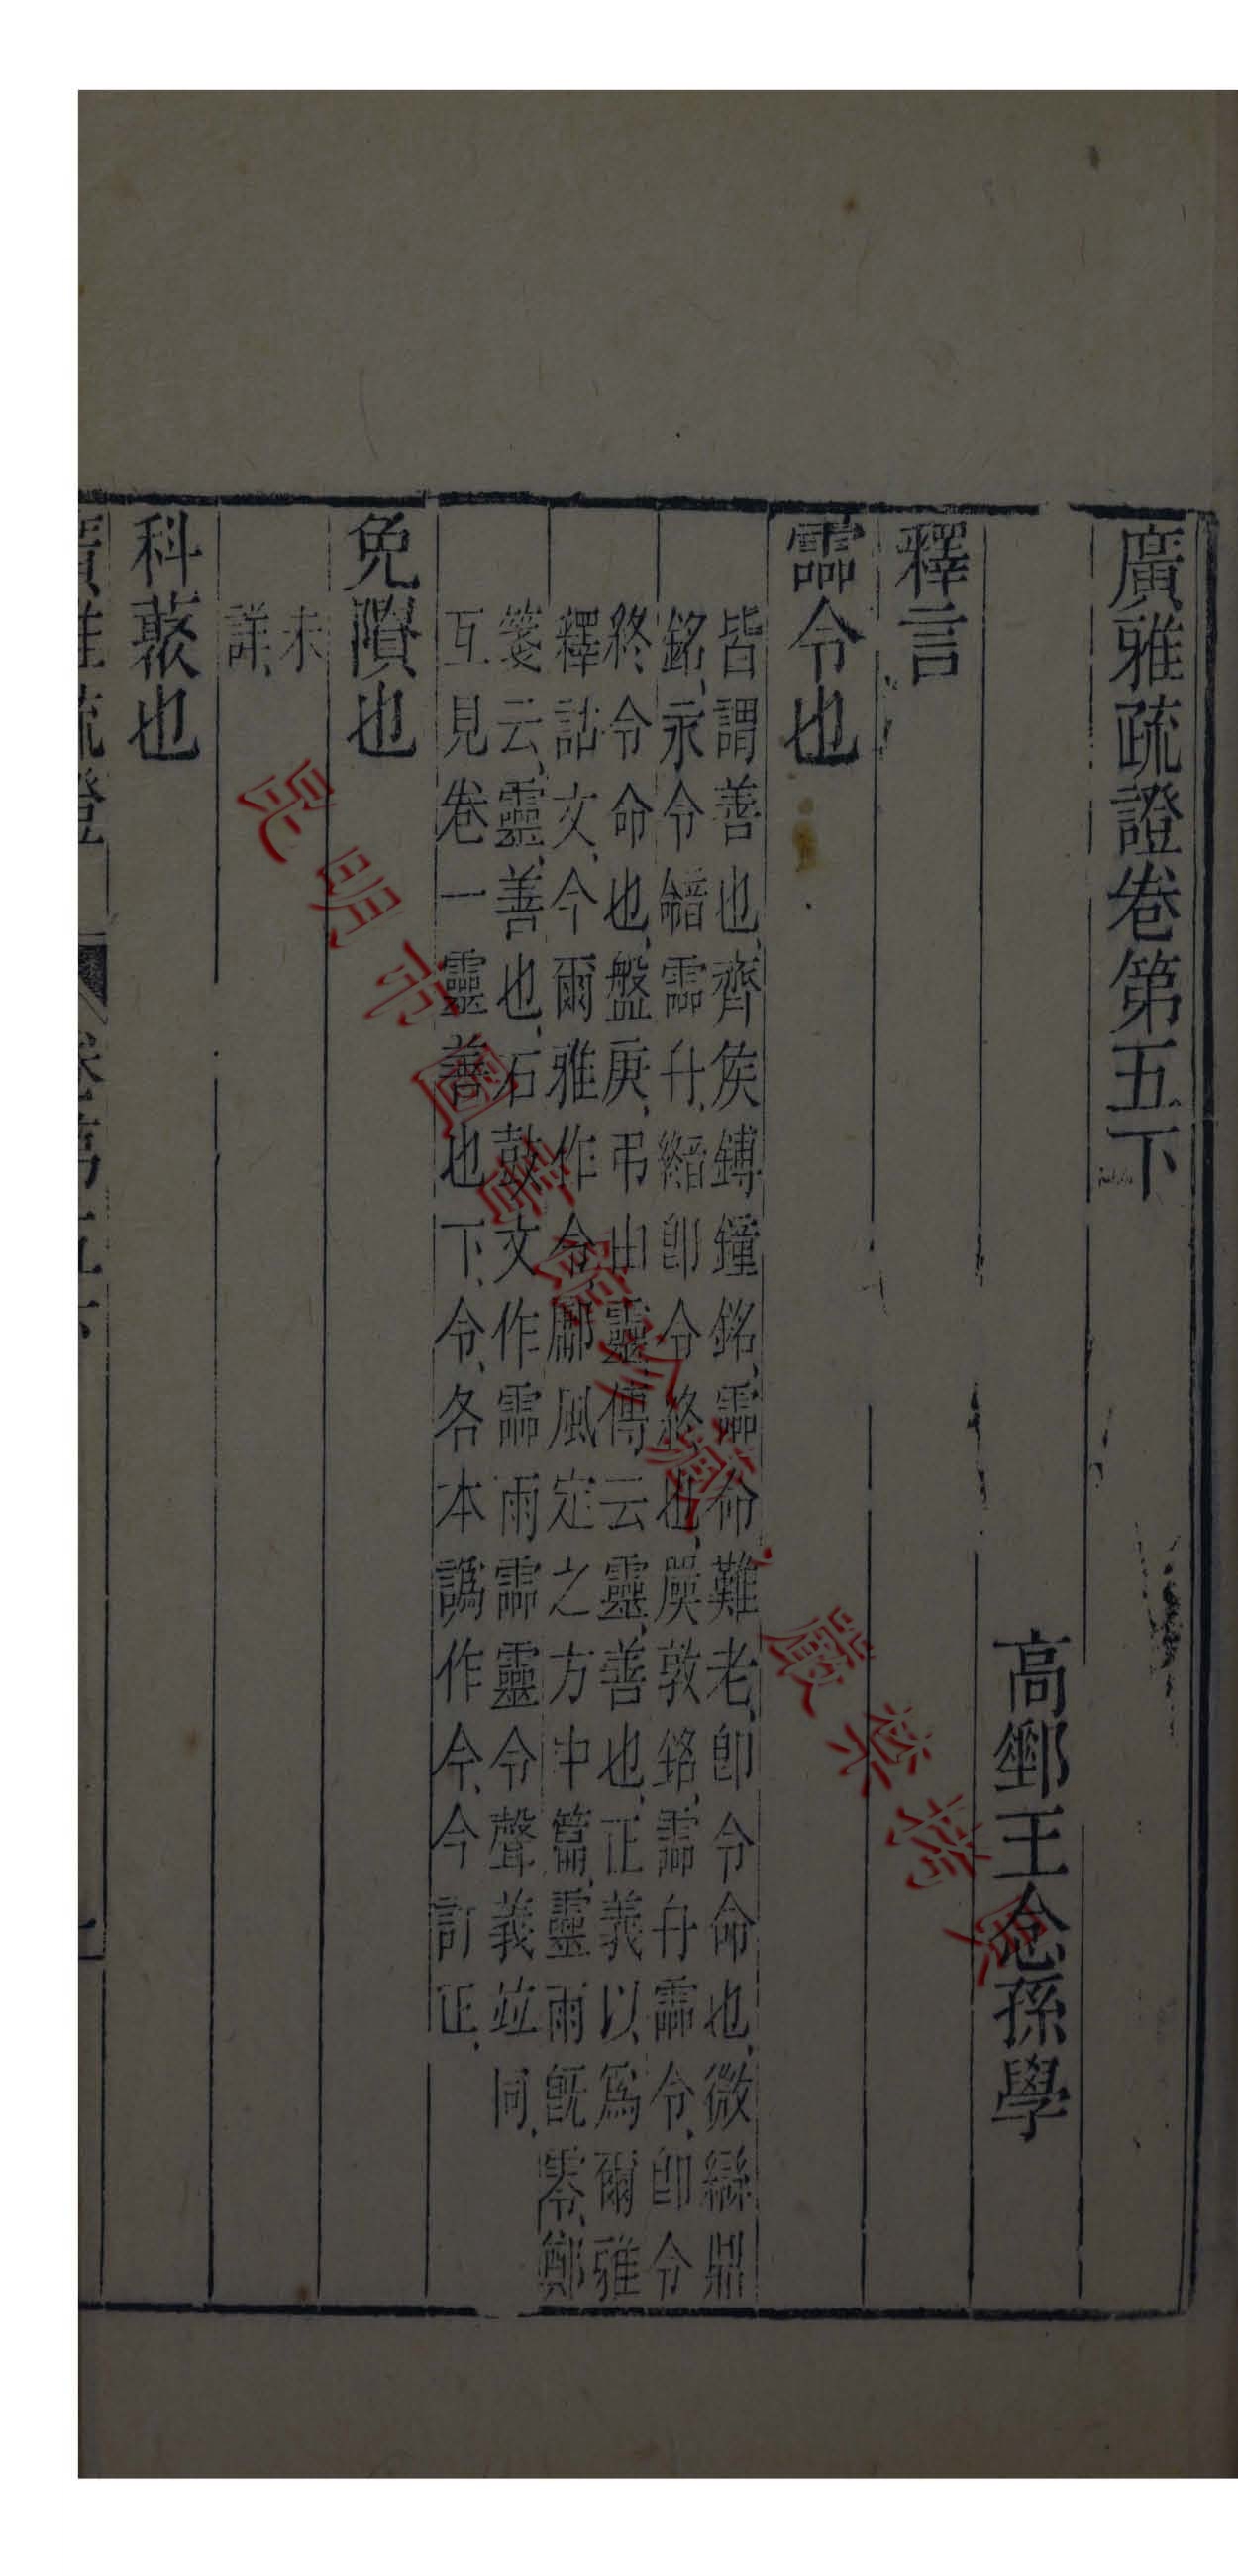 廣雅疏證卷第五下
高郵王念孫學
釋言
霝令也
皆謂善也、齊矦鎛鐘銘、霝命難老、卽令命也、微䜌鼎
銘、永令霝卽令終也、敦銘、霝霝令、卽令
終令命也、盤庚、弔由靈、傳云靈、善也、正義以爲爾雅
釋詁文、今爾雅作令、鄘風定之方中篇、靈雨旣零、鄭
箋云、靈、善也、石鼓文作霝雨霝靈令聲義竝同、
互見卷一靈善也下、令、各本譌作今、今訂正、
免隫也
未
詳、
科藂也
廣雅疏證 卷第五下 一
昆明市圖書館珍藏，嚴禁